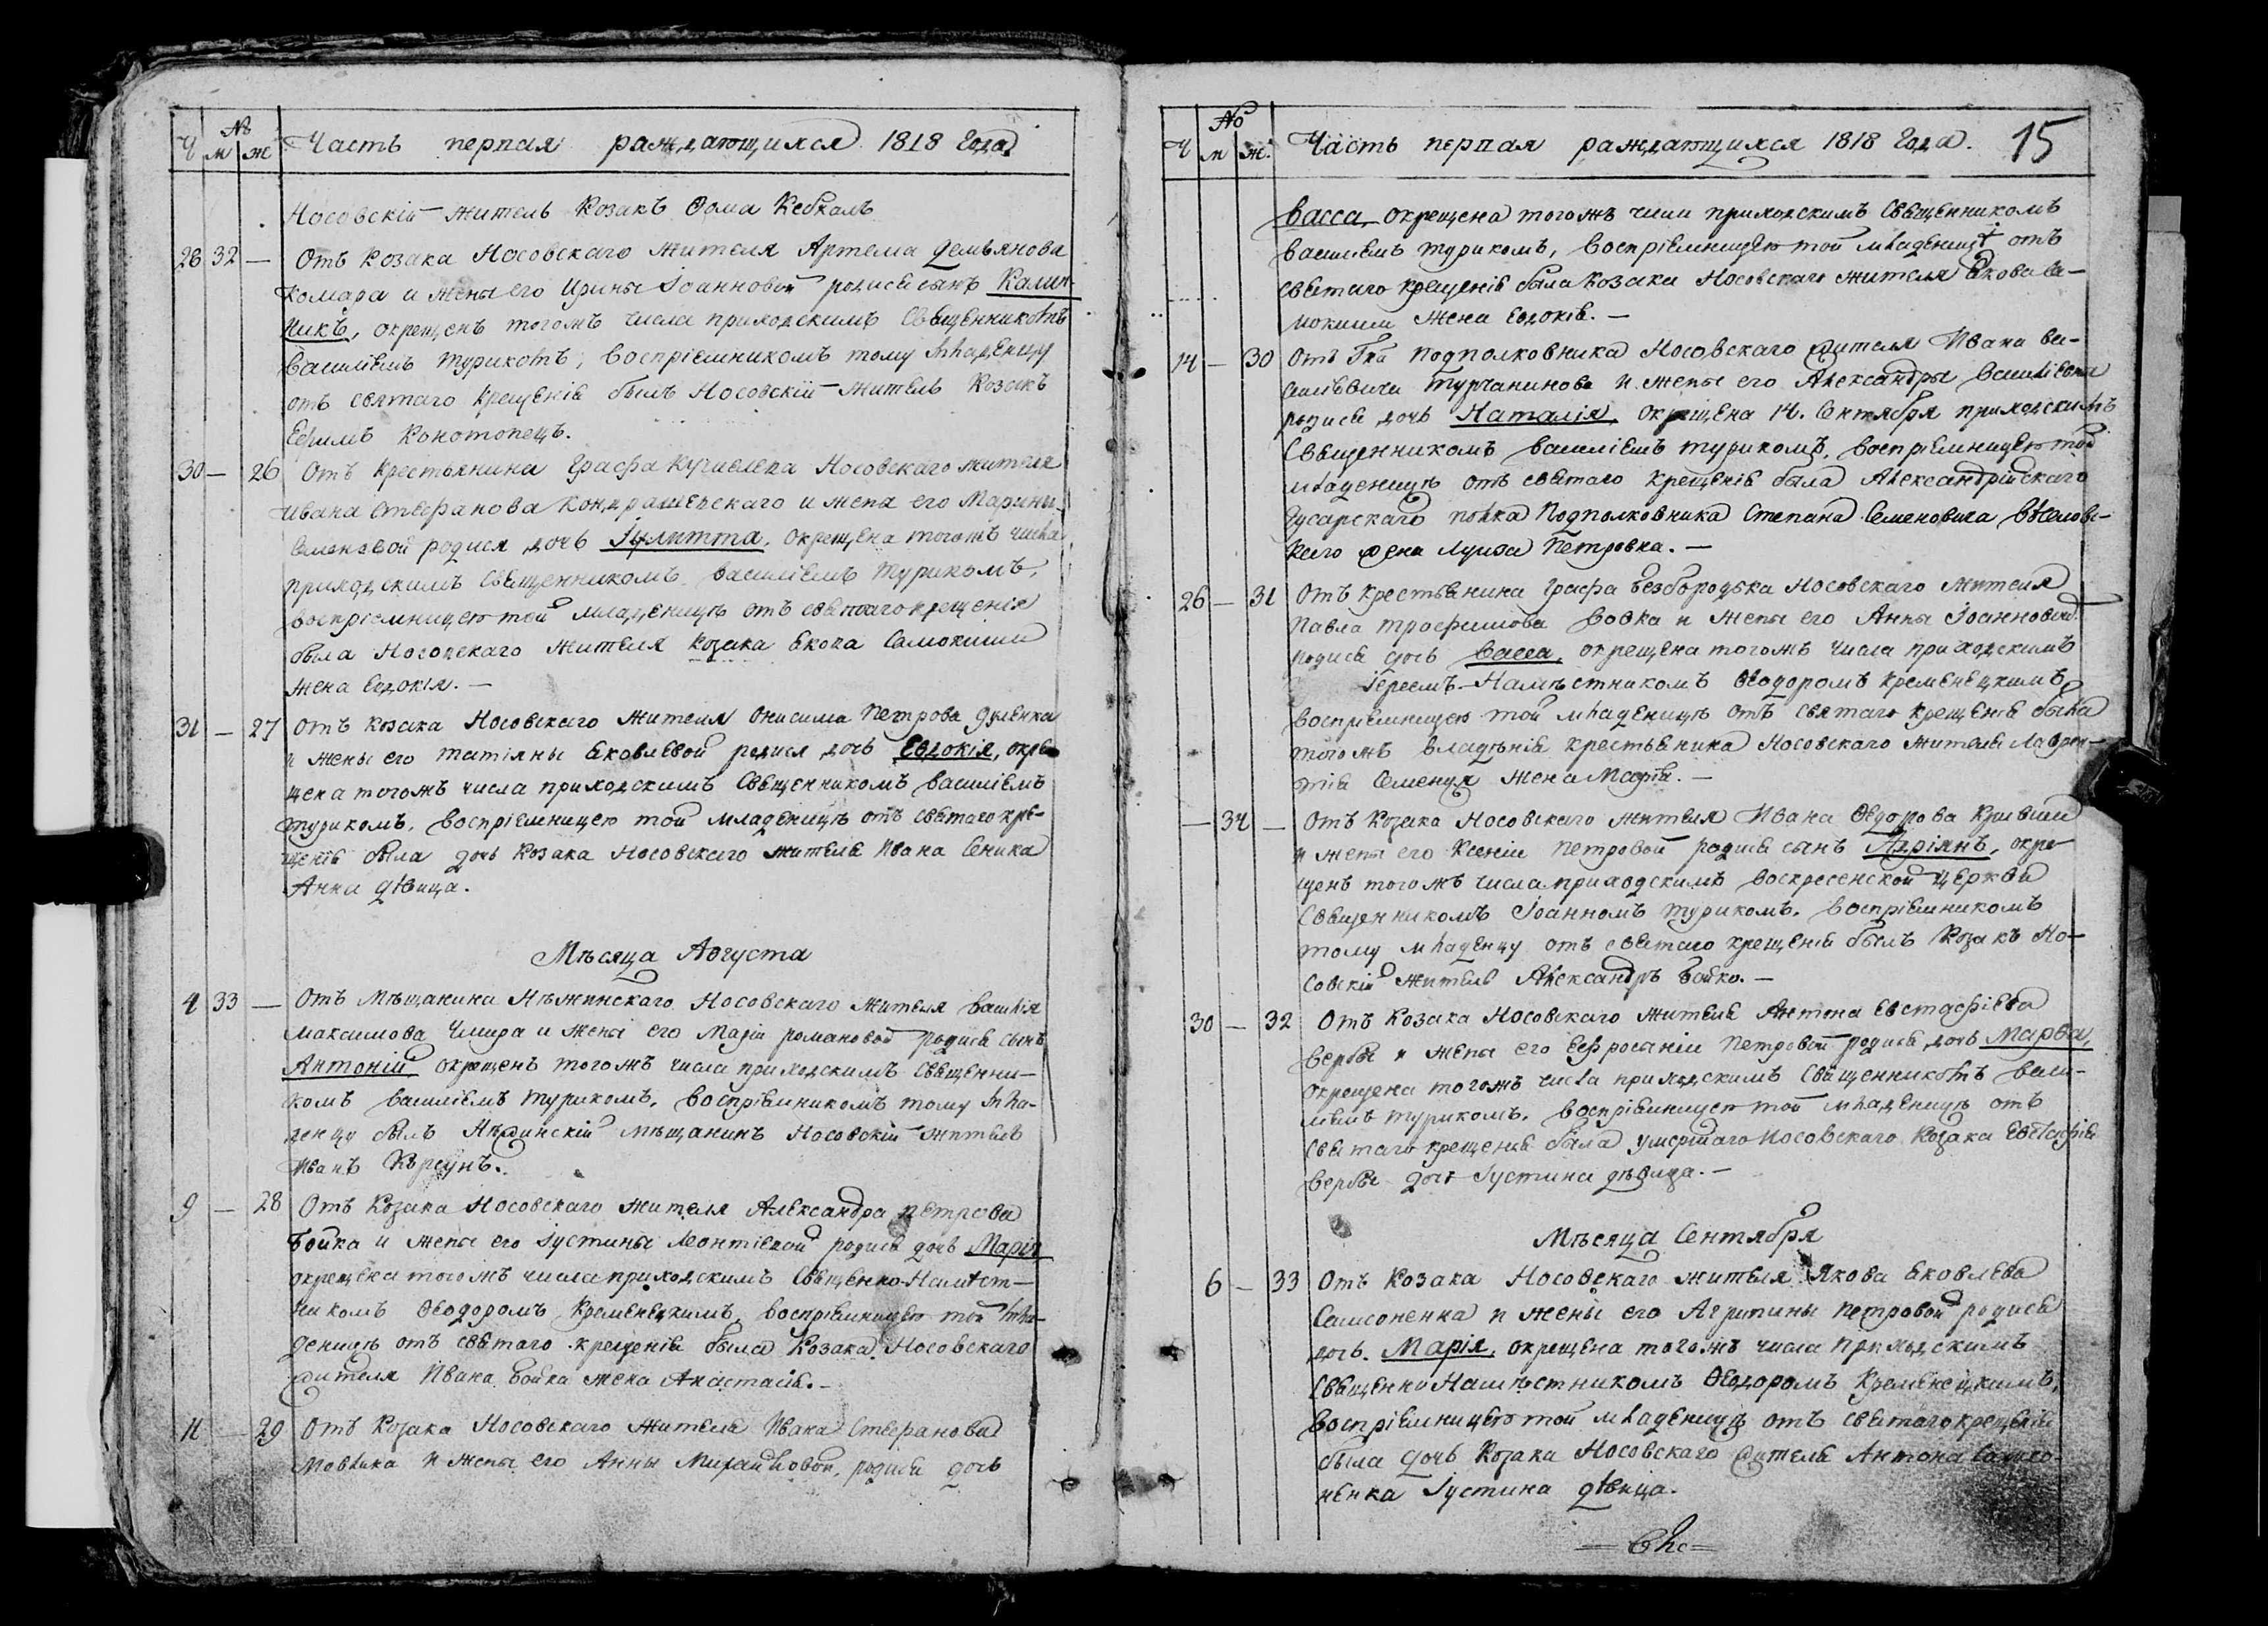 Ч № м ж Часть первая раждающихся 1818 года.
Носовскій житель козакъ Ѳома Кебкалъ
28 32 — Отъ козака Носовскаго жителя Артема Демьянова
Комара и жены его Ирины Іоанновой родися сынъ Калин-
никъ, окрещенъ тогожъ числа приходскимъ Священникомъ
Василіемъ Турикомъ, воспріемникомъ тому младенцу
отъ святаго крещенія былъ Носовскій житель козакъ
Ефимъ Конотопецъ.
30 — 26 Отъ крестьянина Графа Кушелева Носовскаго жителя
Ивана Стефанова Кондрашевскаго и жены его Марины
Семеновой родися дочь Іулитта, окрещена тогожъ числа
приходскимъ Священникомъ Василіемъ Турикомъ,
воспріемницею той младеницѣ отъ святаго крещенія
была Носовскаго жителя козака Якова Самокиши
жена Евдокія. —
31 — 27 Отъ козака Носовскаго жителя Онисима Петрова Дуленка
и жены его Татіяны Яковлевой родися дочь Евдокія, окре-
щена тогожъ числа приходскимъ Священникомъ Василіемъ
Турикомъ, воспріемницею той младеницѣ отъ святаго кре-
щенія была дочь козака Носовскаго жителя Ивана Сеника
Анна дѣвица.
Мѣсяца Августа
4 33 — Отъ мѣщанина Нѣжинскаго Носовскаго жителя Василія
Максимова Чмира и жены его Маріи Романовой родися сынъ
Антоній окрещенъ тогожъ числа приходскимъ Священни-
комъ Василіемъ Турикомъ, воспріемникомъ тому мла-
денцу былъ Нѣжинскій мѣщанинъ Носовскій житель
Иванъ Корсунъ.
9 — 28 Отъ козака Носовскаго жителя Александра Петрова
Бойка и жены его Іустины Леонтіевой родися дочь Марія
окрещена тогожъ числа приходскимъ Священно-Намѣст-
никомъ Ѳеодоромъ Кременецкимъ, воспріемницею той мла-
деницѣ отъ святаго крещенія была козака Носовскаго
жителя Ивана Бойка жена Анастасія. —
11 — 29 Отъ козака Носовскаго жителя Ивана Стефанова
Мовлика и жены его Анны Михайловой, родися дочь
Ч № м ж. Часть первая раждающихся 1818 года. 15
Васса, окрещена тогожъ числа приходскимъ Священникомъ
Василіемъ Турикомъ, воспріемницею той младеницѣ отъ
святаго крещенія была козака Носовскаго жителя Якова Са-
мокиши жена Евдокія. —
14 — 30 Отъ Гна Подполковника Носовскаго жителя Ивана Ва-
силіевича Турчанинова и жены его Александры Василіевны
родися дочь Наталія, окрещена 14. Сентября приходскимъ
Священникомъ Василіемъ Турикомъ, воспріемницею той
младеницѣ отъ святаго крещенія была Александрійскаго
Гусарскаго полка Подполковника Степана Семеновича
каго жена Луиза Петровна. —
26 — 31 Отъ крестьянина Графа Безбородька Носовскаго жителя
Павла Трофимова Вовка и жены его Анны Іоанновой
родися дочь Васса, окрещена тогожъ числа приходскимъ
Іереемъ-Намѣстникомъ Ѳеодоромъ Кременецкимъ,
воспріемницею той младеницѣ отъ святаго крещенія была
тогожъ владѣнія крестьянина Носовскаго жителя Лаврен-
тія Семенця жена Марія. —
— 34 — Отъ козака Носовскаго жителя Ивана Ѳедорова Кривши
и жены его Ксеніи Петровой родися сынъ Адріянъ, окре-
щенъ тогожъ числа приходскимъ Воскресенской церкви
Священникомъ Іоанномъ Турикомъ, воспріемникомъ
тому младенцу отъ святаго крещенія былъ козакъ Но-
совскій житель Александръ Бойко. —
30 — 32 Отъ козака Носовскаго жителя Антона Евстафіева
Вербы и жены его Евфросиніи Петровой родися дочь Марѳа,
окрещена тогожъ числа приходскимъ Священникомъ Васи-
ліемъ Турикомъ, воспріемницею той младеницѣ отъ
святаго крещенія была умершаго Носовскаго козака Евстафія
Вербы дочь Іустина дѣвица. —
Мѣсяца Сентября
6 — 33 Отъ козака Носовскаго жителя Якова Яковлева
Самсоненка и жены его Агрипины Петровой родися
дочь Марія, окрещена тогожъ числа приходскимъ
Священно Намѣстникомъ Ѳеодоромъ Кременецкимъ,
воспріемницею той младеницѣ отъ святаго крещенія
была дочь козака Носовскаго жителя Антона Самсо-
ненка Іустина дѣвица.